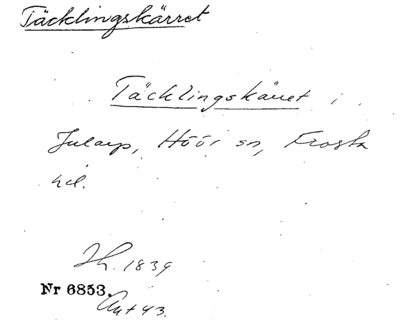 Täcklingskärret
Täcklingskärret i
Jularp, Höör sn, Frosta
hd.
Jh. 1839
Nr 6853.
Ant 43.